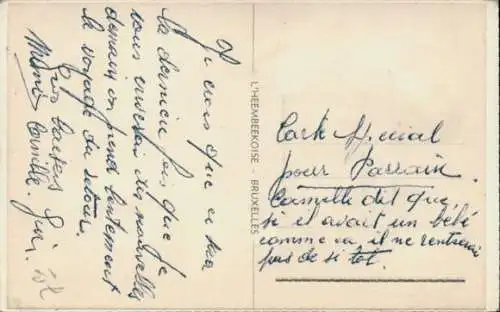 Je crois que ce sera
la dernière fois que je
vous enverrai des nouvelles
demain on prend lentement
le voyage du retour.
Gros baisers
Mimie Camille.
L'HEEMBEEKOISE - BRUXELLES
Carte spécial
pour Parrain.
Camille dit que,
si il avait un bébé
comme ça, il ne rentrerai
pas de si tot.